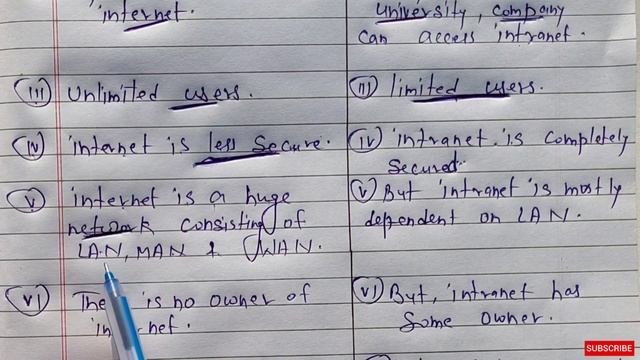 internet.
(iii) Unlimited users.
(iv) internet is less secure.
(v) internet is a huge
network consisting of
LAN, MAN & WAN.
(vi) The is no owner of
internet.
university, company
can access intranet.
(iii) limited users.
(iv) intranet is completely
secured.
(v) But intranet is mostly
dependent on LAN.
(vi) But, intranet has
some owner.
SUBSCRIBE